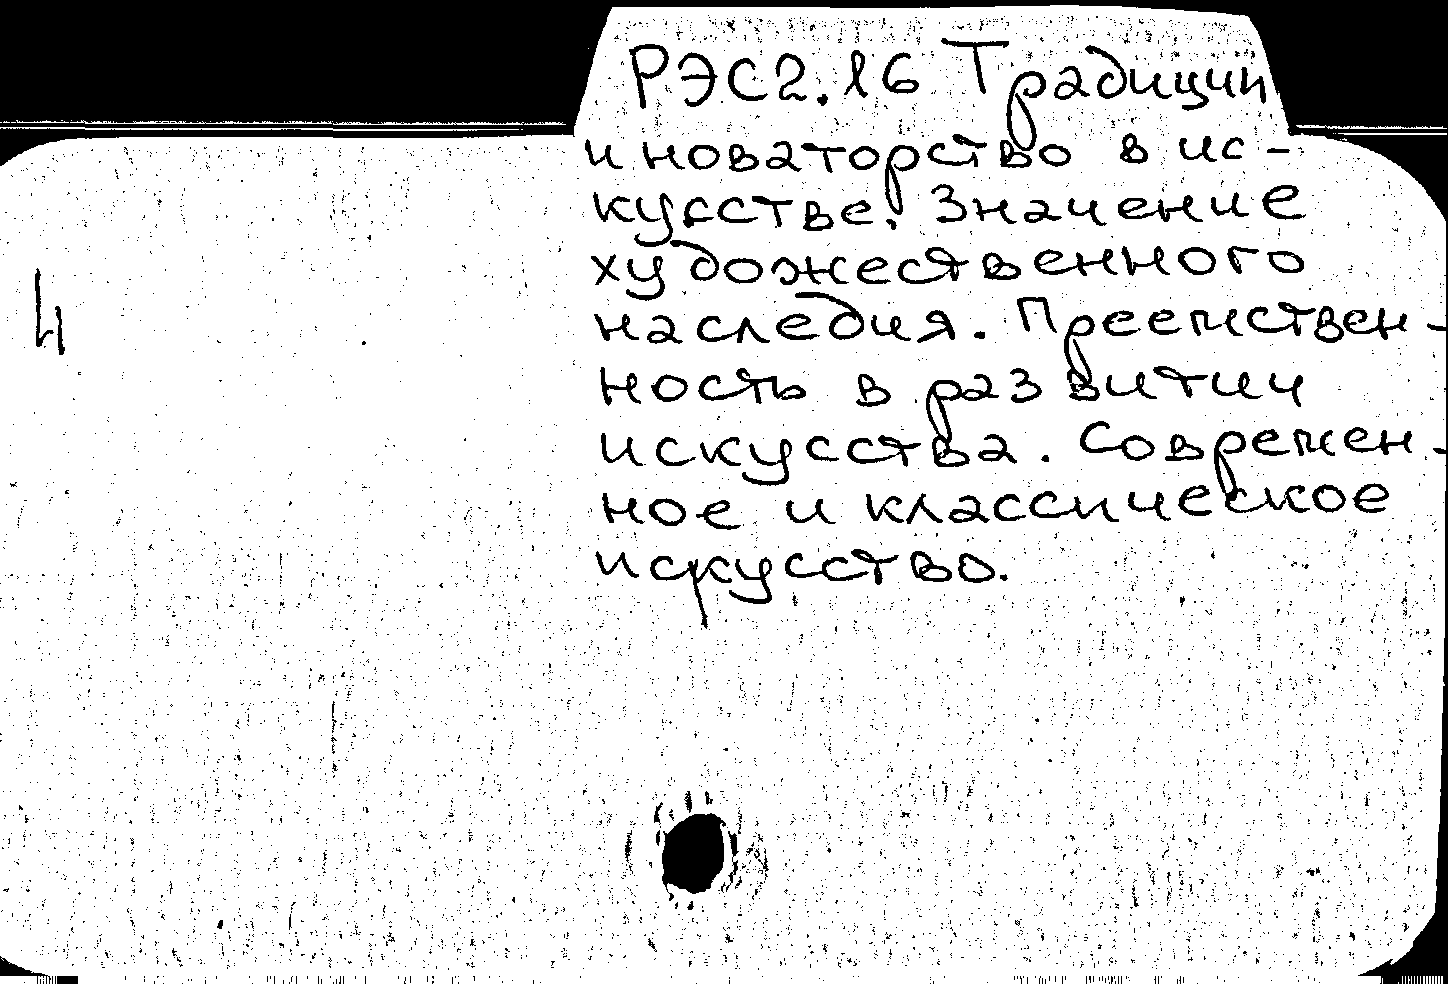 РЭС2.16 Традиции
и новаторство в ис-
кусстве. Значение
художественного
наследия. Преемствен-
ность в развитии
искусства. Современ-
ное и классическое
искусство.
4